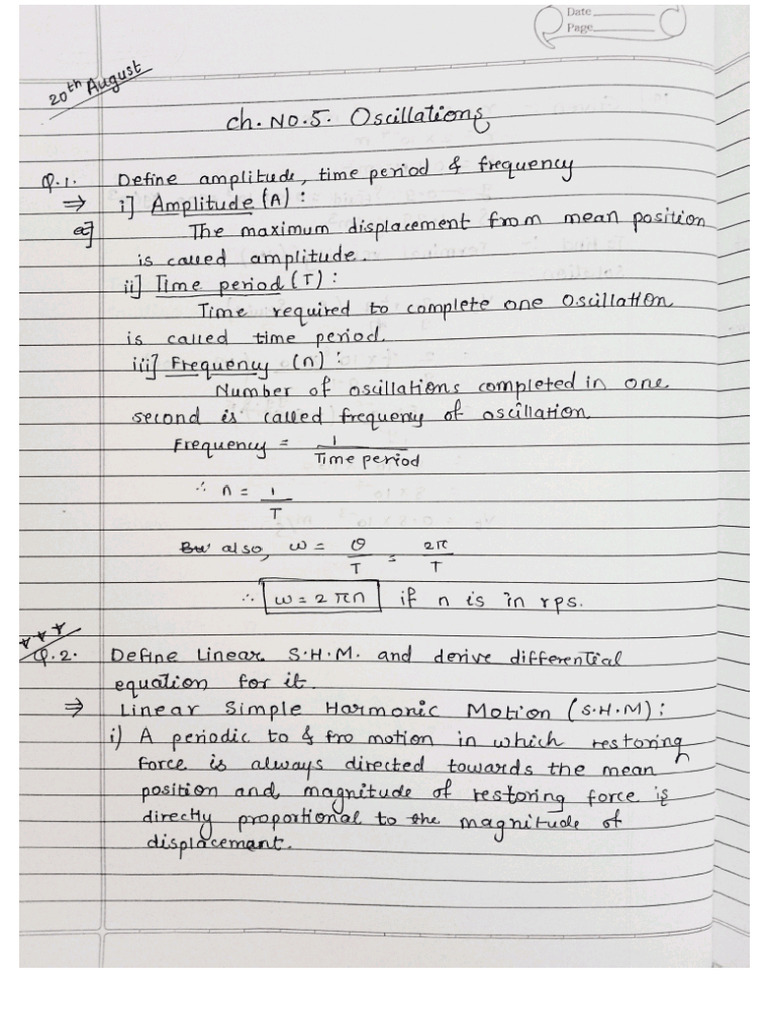 Date
Page
20th August
Ch. No. 5. Oscillations
Q.1. Define amplitude, time period & frequency
⇒ i] Amplitude (A) :
The maximum displacement from mean position
is called amplitude.
ii] Time period (T) :
Time required to complete one Oscillation
is called time period.
iii] Frequency (n) :
Number of oscillations completed in one
second is called frequency of oscillation
Frequency = 1 / Time period
∴ n = 1 / T
also, ω = θ / T = 2π / T
∴ ω = 2πn if n is in rps.
Q.2. Define Linear S.H.M. and derive differential
equation for it.
⇒ Linear Simple Harmonic Motion (S.H.M) :
i) A periodic to & fro motion in which restoring
force is always directed towards the mean
position and magnitude of restoring force is
directly proportional to the magnitude of
displacement.